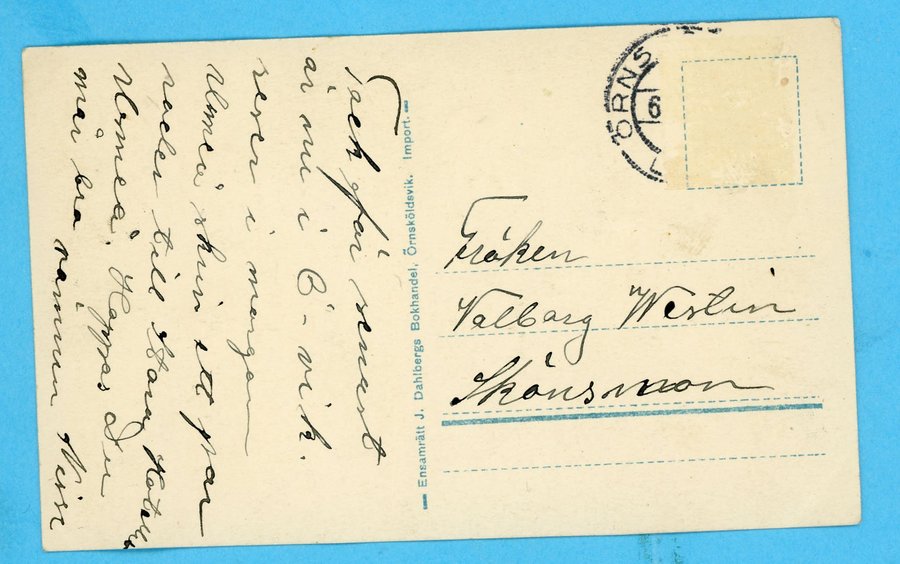 Tack för senast
är nu i Ö-vik.
reser i morgon
Umeå skriv ett par
rader till Stora Hotellet
Umeå. Hoppas Du
mår bra
Ensamrätt J. Dahlbergs Bokhandel, Örnsköldsvik. Import.
ÖRNS
6
Fröken
Valborg Westin
Skönsmon